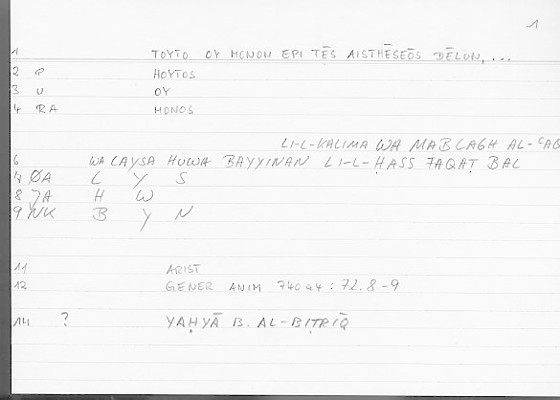 1
1 TOYTO OY MONON EPI TĒS AISTHĒSEŌS DĒLON, ...
2 P HOYTOS
3 U OY
4 RA MONOS
LI-L-KALIMA WA MABLAGH AL-ʿAQ
6 WA LAYSA HUWA BAYYINAN LI-L-ḤASS FAQAṬ BAL
7 ØA L Y S
8 7A H W
9 NK B Y N
11 ARIST
12 GENER ANIM 740a4 : 72.8-9
14 ? YAḤYĀ B. AL-BIṬRĪQ